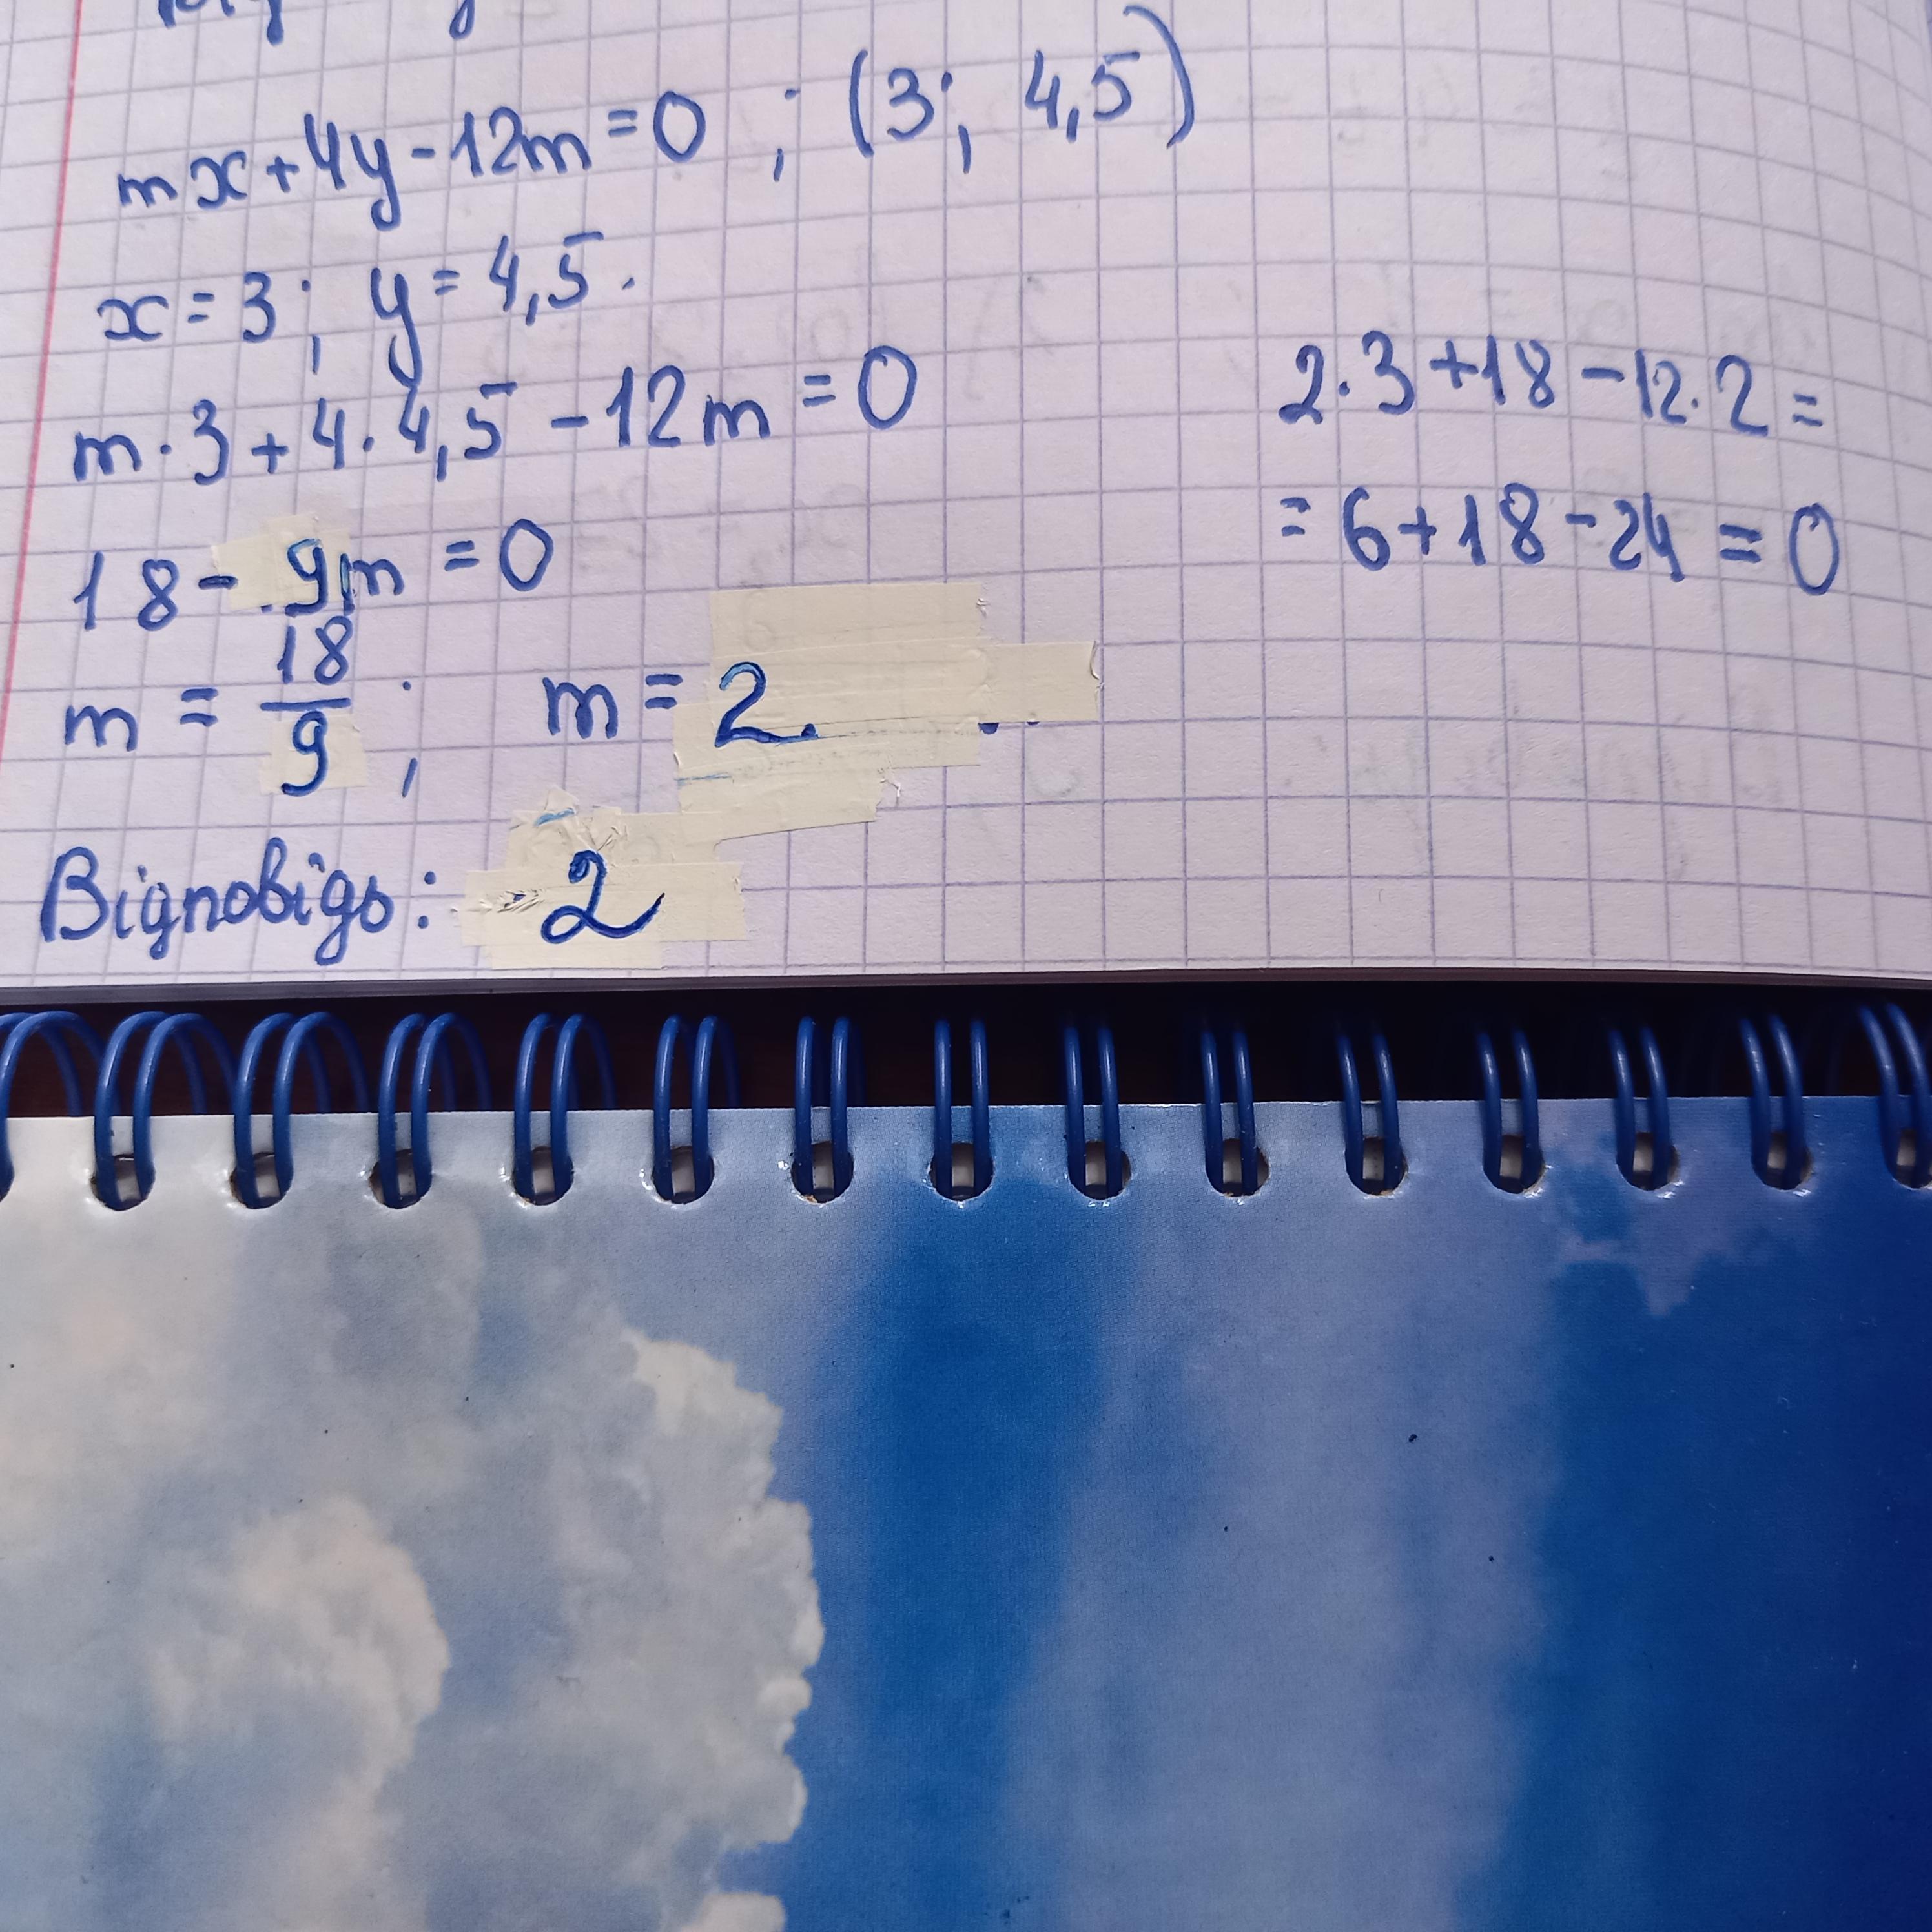 mx+4y-12m=0 ; (3; 4,5)
x=3; y=4,5.
m·3+4·4,5-12m=0
18-9m=0
m=18/9; m=2.
Відповідь: 2
2·3+18-12·2=
=6+18-24=0